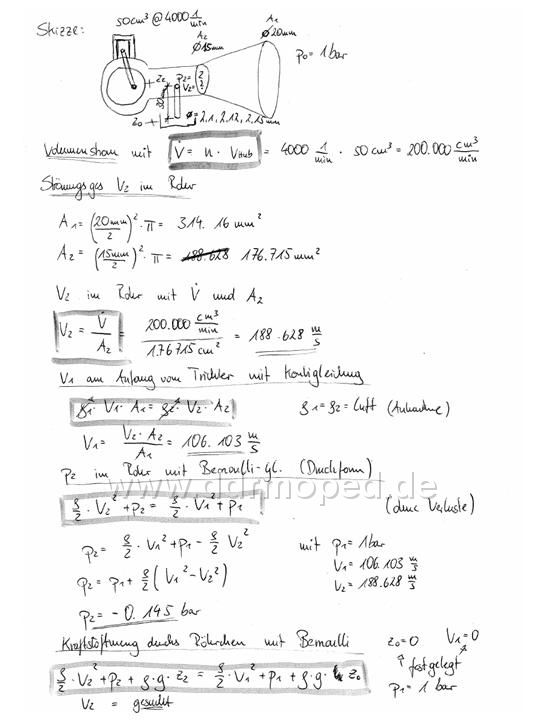 Skizze:
50cm³ @ 4000 1/min
A1
⌀20mm
A2
⌀15mm
p0 = 1bar
z2
p2=
V2=
30mm
z0
⌀ = 2,1, 2,12, 2,15mm
Volumenstrom mit V̇ = n · VHub = 4000 1/min · 50 cm³ = 200.000 cm³/min
V2 im Rohr
A1 = (20mm/2)² · π = 314.16 mm²
A2 = (15mm/2)² · π = 188.628 176.715 mm²
V2 im Rohr mit V̇ und A2
V2 = V̇/A2 = 200.000 cm³/min / 1.76715 cm² = 188.628 m/s
V1 am Anfang vom Trichter mit Kontigleichung
ρ1 · V1 · A1 = ρ2 · V2 · A2 ρ1 = ρ2 = Luft (Annahme)
V1 = V2 · A2 / A1 = 106.103 m/s
p2 im Rohr mit Bernoulli-Gl. (Druckform)
www.ddrmoped.de
ρ/2 · V2² + p2 = ρ/2 · V1² + p1 (ohne Verluste)
p2 = ρ/2 · V1² + p1 - ρ/2 V2² mit p1 = 1bar
V1 = 106.103 m/s
p2 = p1 + ρ/2 (V1² - V2²) V2 = 188.628 m/s
p2 = - 0.145 bar
Kraftstoffströmung durchs Röhrchen mit Bernoulli z0=0 V1=0
ρ/2 · V2² + p2 + ρ · g · z2 = ρ/2 · V1² + p1 + ρ · g · z0 festgelegt
V2 = gesucht p1 = 1 bar